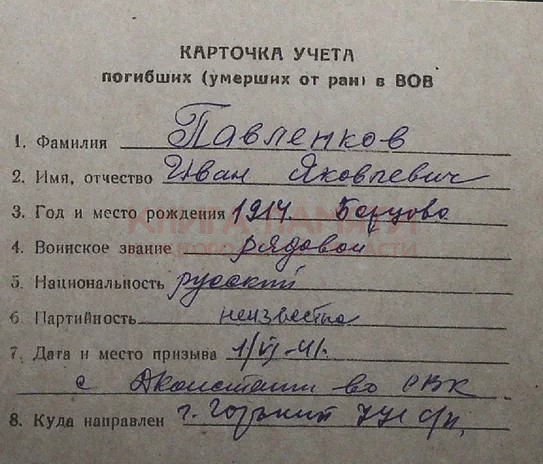 КАРТОЧКА УЧЕТА
погибших (умерших от ран) в ВОВ
1. Фамилия Павленков
2. Имя, отчество Иван Яковлевич
3. Год и место рождения 1917. Борцово
КНИГА ПАМЯТИ
4. Воинское звание рядовой
5. Национальность русский
6. Партийность неизвестна
7. Дата и место призыва 1/VI-41г.
с во РВК
8. Куда направлен г. Горький